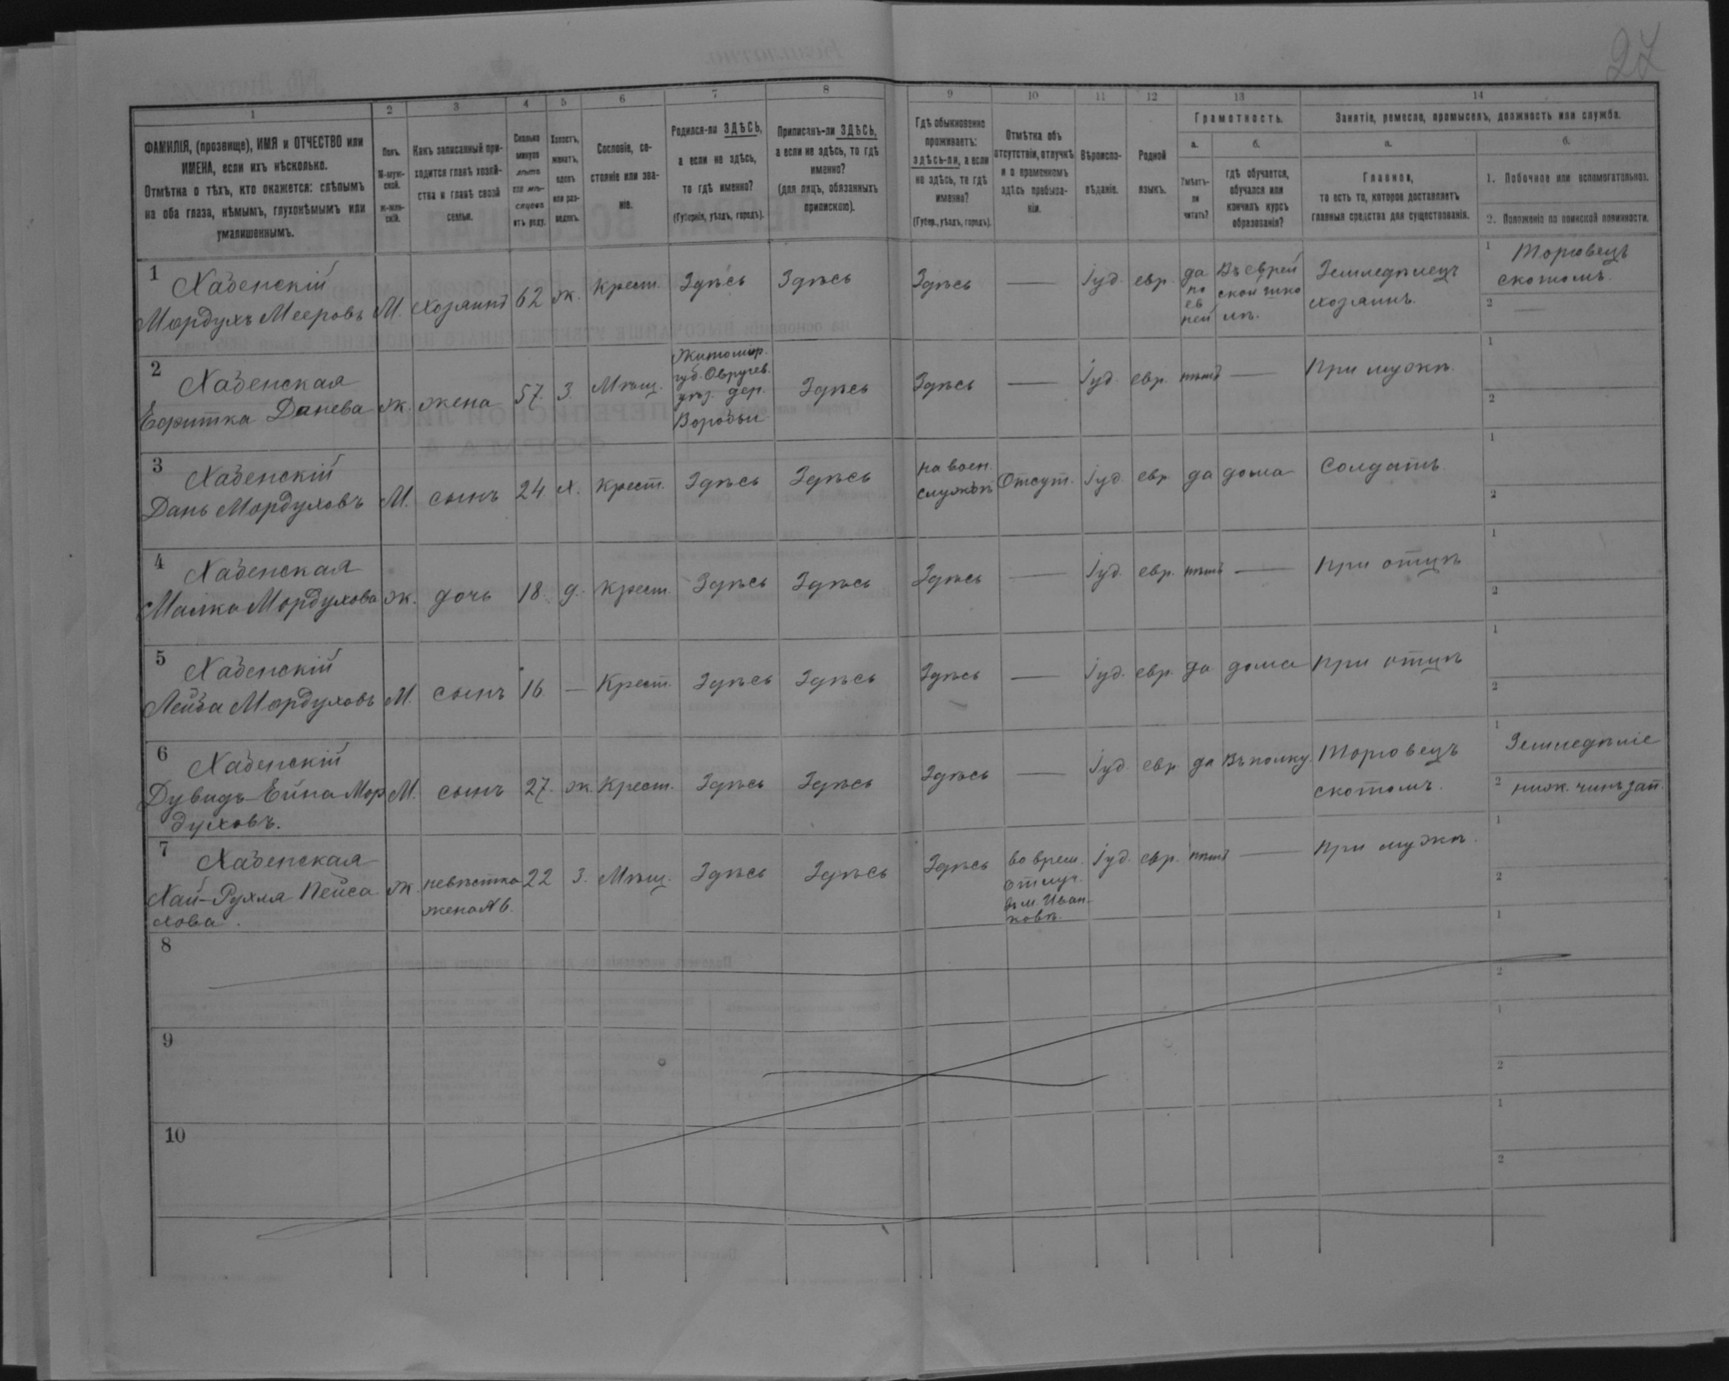 27
1 2 3 4 5 6 7 8 9 10 11 12 13 14
ФАМИЛІЯ, (прозвище), ИМЯ и ОТЧЕСТВО или
ИМЕНА, если ихъ нѣсколько.
Отмѣтка о тѣхъ, кто окажется: слѣпымъ
на оба глаза, нѣмымъ, глухонѣмымъ или
умалишеннымъ.
Полъ.
М-муж-
ской.
ж-жен-
скій.
Какъ записанный при-
ходится главѣ хозяй-
ства и главѣ своей
семьи.
Сколько
минуло
лѣтъ
или мѣ-
сяцевъ
отъ роду.
Холостъ,
женатъ,
вдовъ
или раз-
веденъ.
Сословіе, со-
стояніе или зва-
ніе.
Родился-ли ЗДѢСЬ,
а если не здѣсь,
то гдѣ именно?
(Губернія, уѣздъ, городъ).
Приписанъ-ли ЗДѢСЬ,
а если не здѣсь, то гдѣ
именно?
(для лицъ, обязанныхъ
припискою).
Гдѣ обыкновенно
проживаетъ:
здѣсь-ли, а если
не здѣсь, то гдѣ
именно?
(Губер., уѣздъ, городъ).
Отмѣтка объ
отсутствіи, отлучкѣ
и о временномъ
здѣсь пребыва-
ніи.
Вѣроиспо-
вѣданіе.
Родной
языкъ.
Грамотность.
а.
Умѣетъ-
ли
читать?
б.
гдѣ обучается,
обучался или
кончилъ курсъ
образованія?
Занятіе, ремесло, промыселъ, должность или служба.
а.
Главное,
то есть то, которое доставляетъ
главныя средства для существованія.
б.
1. Побочное или вспомогательное.
2. Положеніе по воинской повинности.
1 Хабенскій
Мордухъ Мееровъ М. хозяинъ 62 ж. Крест. Здѣсь Здѣсь Здѣсь — Іуд. евр. да
по
ев
рей
Въ еврей
ской шко
лѣ.
Земледѣлецъ
хозяинъ.
1 Торговецъ
скотомъ.
2 —
2 Хабенская
Ж. жена 57. З. Мѣщ.
Житомир.
губ. Овручев.
уѣз. дер.
Воробьи
Здѣсь Здѣсь — Іуд. евр. нѣтъ — При мужѣ.
1
2
3 Хабенскій
Дань Мордуховъ М. сынъ 24 х. Крест. Здѣсь Здѣсь
на воен.
службѣ
Отсут. Іуд. евр. да дома Солдатъ.
1
2
4 Хабенская
Малка Мордухова Ж. дочь 18. д. Крест. Здѣсь Здѣсь Здѣсь — Іуд. евр. нѣтъ — При отцѣ
1
2
5 Хабенскій
Лейба Мордуховъ М. сынъ 16 — Крест. Здѣсь Здѣсь Здѣсь — Іуд. евр. да дома При отцѣ
1
2
6 Хабенскій
Дувидъ-Ейна Мор
духовъ.
М. сынъ 27. ж. Крест. Здѣсь Здѣсь Здѣсь — Іуд. евр. да Въ полку. Торговецъ
скотомъ.
1 Земледѣліе
2 ниж. чинъ зап.
7 Хабенская
Хая-Рухля Пейса
хова.
Ж. невѣстка
жена №6.
22 З. Мѣщ. Здѣсь Здѣсь Здѣсь
во врем.
отлуч.
въ м. Иван
ковѣ.
Іуд. евр. нѣтъ — При мужѣ.
1
2
8
1
2
9
1
2
10
1
2